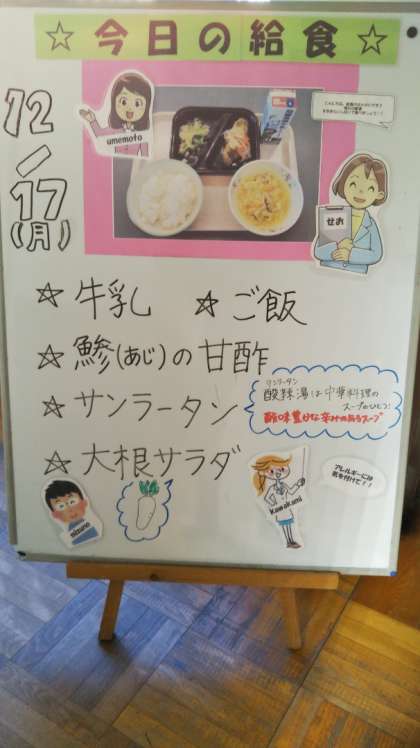 ☆今日の給食☆
12/17(月)
umemoto
せお
☆牛乳 ☆ご飯
☆鯵(あじ)の甘酢
☆サンラータン
サンラータン
酸辣湯は中華料理の
スープのひとつ!
酸味豊かな辛みのあるスープ
☆大根サラダ
mizuno
Kawakami
アレルギーには
気を付けて!!